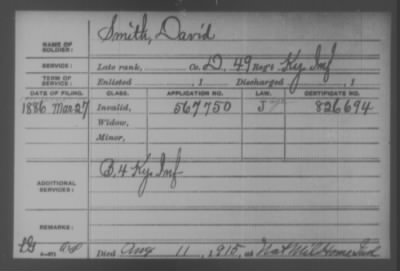 NAME OF SOLDIER: Smith, David
SERVICE: Late rank, Co. D, 49 Reg't Ky. Inf
TERM OF SERVICE: Enlisted , 1 Discharged , 1
DATE OF FILING. CLASS. APPLICATION NO. LAW. CERTIFICATE NO.
1886 Mar 27 Invalid, 567750 J 826694
Widow,
Minor,
ADDITIONAL SERVICES: B, 4 Ky. Inf
REMARKS:
Died Aug 11, 1915, at Nat Mil Home Ind